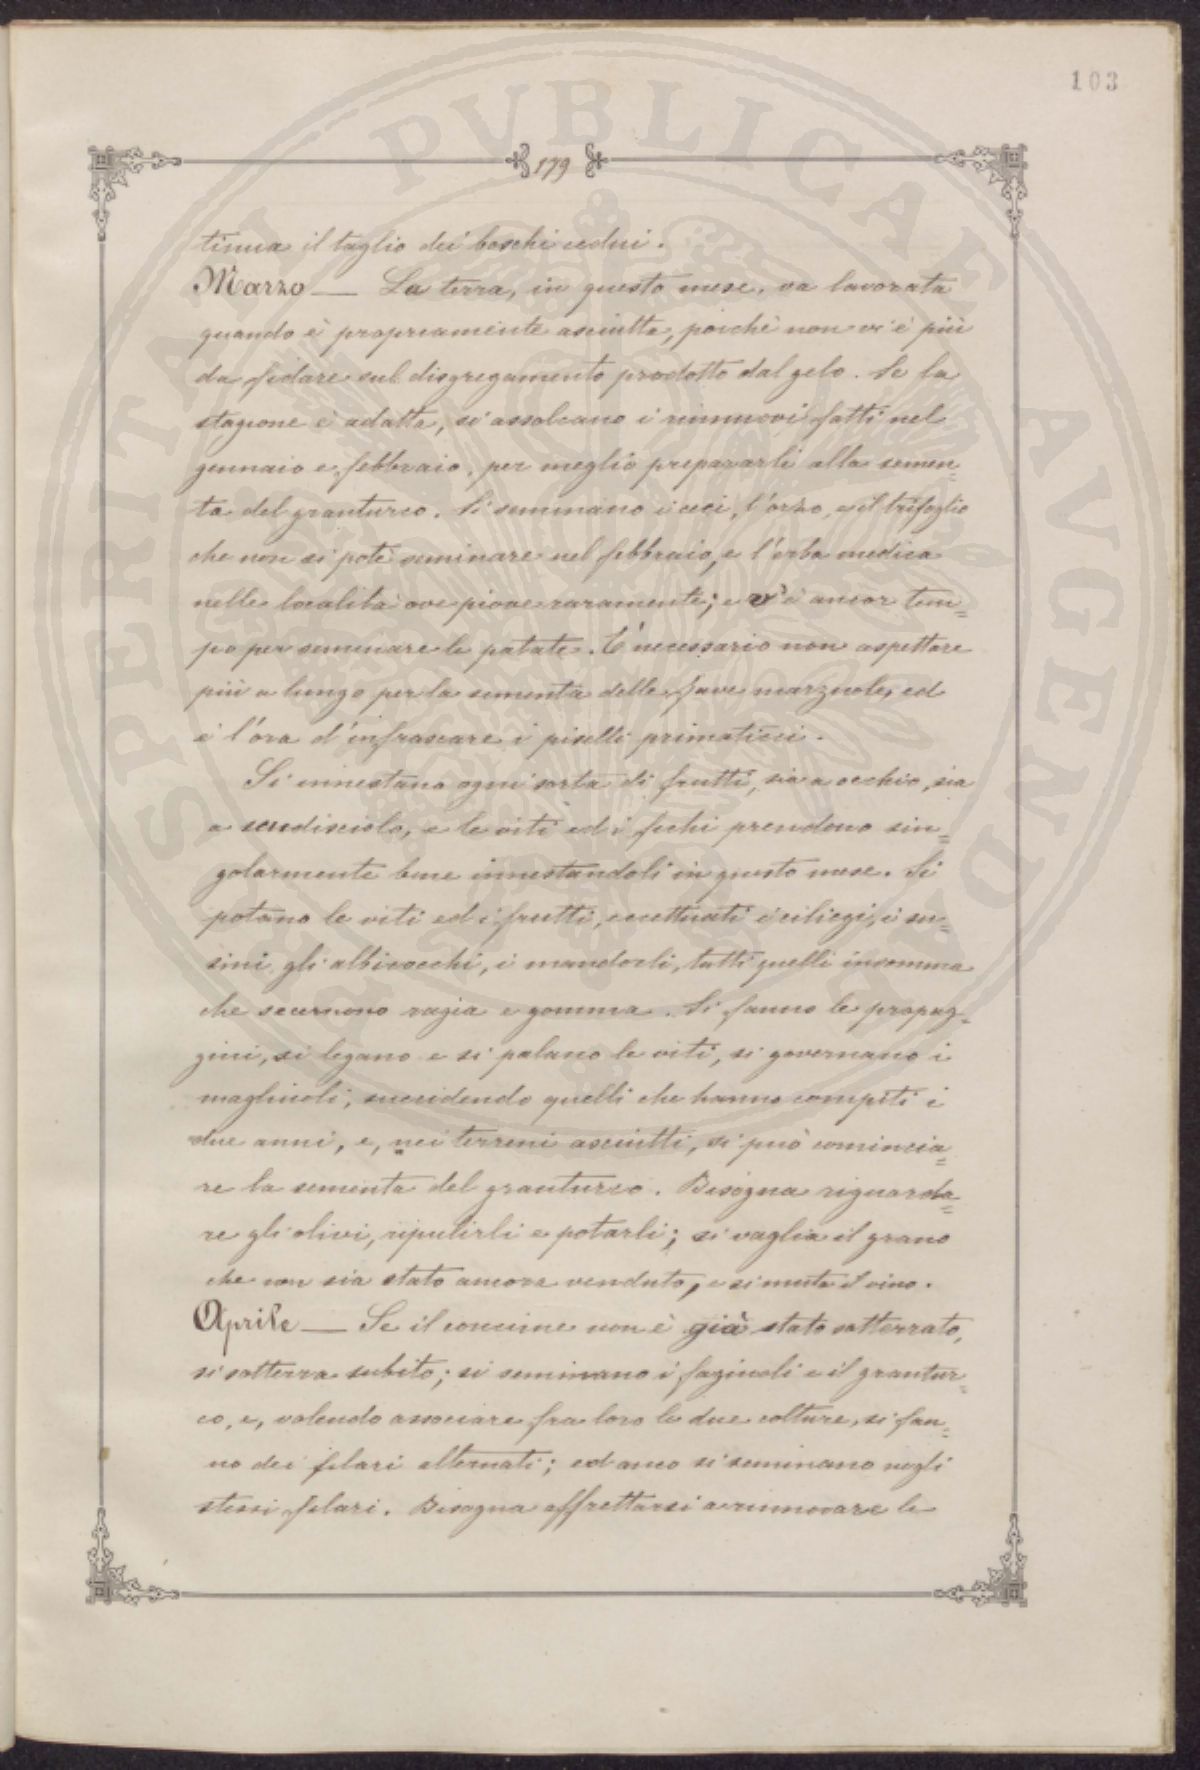 103
179
tinua il taglio dei boschi cedui.
Marzo — La terra, in questo mese, va lavorata
quando è propriamente asciutta, poichè non vi è più
da fidare sul disgregamento prodotto dal gelo. Se la
stagione è adatta, si assolcano i rinnuovi fatti nel
gennaio e febbraio, per meglio prepararli alla semen=
ta del granturco. Si seminano i ceci, l'orzo, e il trifoglio
che non si potè seminare nel febbraio, e l'erba medica
nelle località ove piove raramente; e v'è ancor tem=
po per seminare le patate. E' necessario non aspettare
più a lungo per la sementa delle fave marzuole, ed
è l'ora d'infrascare i piselli primaticci.
Si innestano ogni sorta di frutti, sia a occhio, sia
a scudisciolo, e le viti ed i fichi prendono sin=
golarmente bene innestandoli in questo mese. Si
potano le viti ed i frutti, eccettuati i ciliegi, i su=
sini, gli albicocchi, i mandorli, tutti quelli insomma
che secernono ragia e gomma. Si fanno le propag=
gini, si legano e si palano le viti, si governano i
magliuoli, succidendo quelli che hanno compiti i
due anni, e, nei terreni asciutti, si può comincia=
re la sementa del granturco. Bisogna riguarda=
re gli olivi, ripulirli e potarli; si vaglia il grano
che non sia stato ancora venduto, e si muta il vino.
Aprile — Se il concime non è già stato sotterrato,
si sotterra subito; si seminano i fagiuoli e il grantur=
co, e, volendo associare fra loro le due colture, si fan=
no dei filari alternati; ed anco si seminano negli
stessi filari. Bisogna affrettarsi a rinnovare le
SALUTI PUBLICAE AUGENDAE